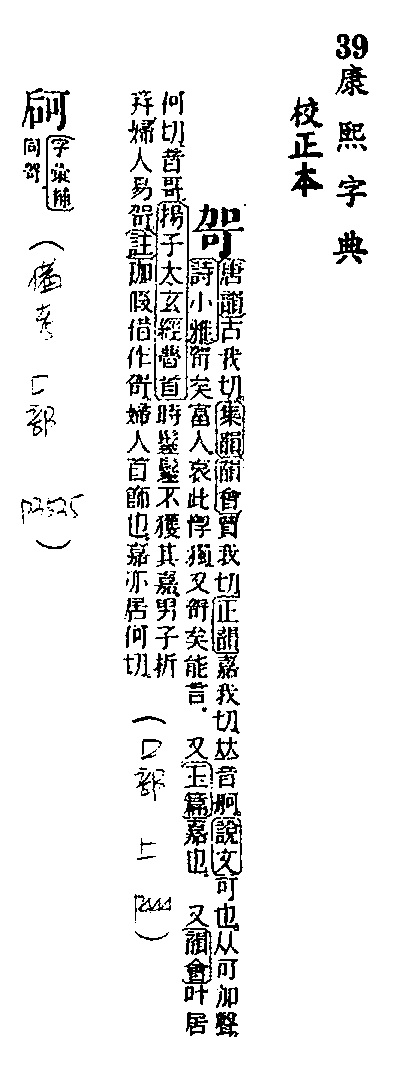 39康熙字典
校正本
哿
唐韻古我切集韻韻會賈我切正韻嘉我切𠀤音舸說文可也从可加聲
詩小雅哿矣富人哀此惸獨又哿矣能言.又玉篇嘉也.又韻會叶居
何切音哥揚子太玄經瞢首時䰐䰐不獲其嘉男子折
笄婦人易哿註珈假借作哿婦人首飾也嘉亦居何切
(口部 上 )
字彙補
同哿
(備考 口部 p2525)